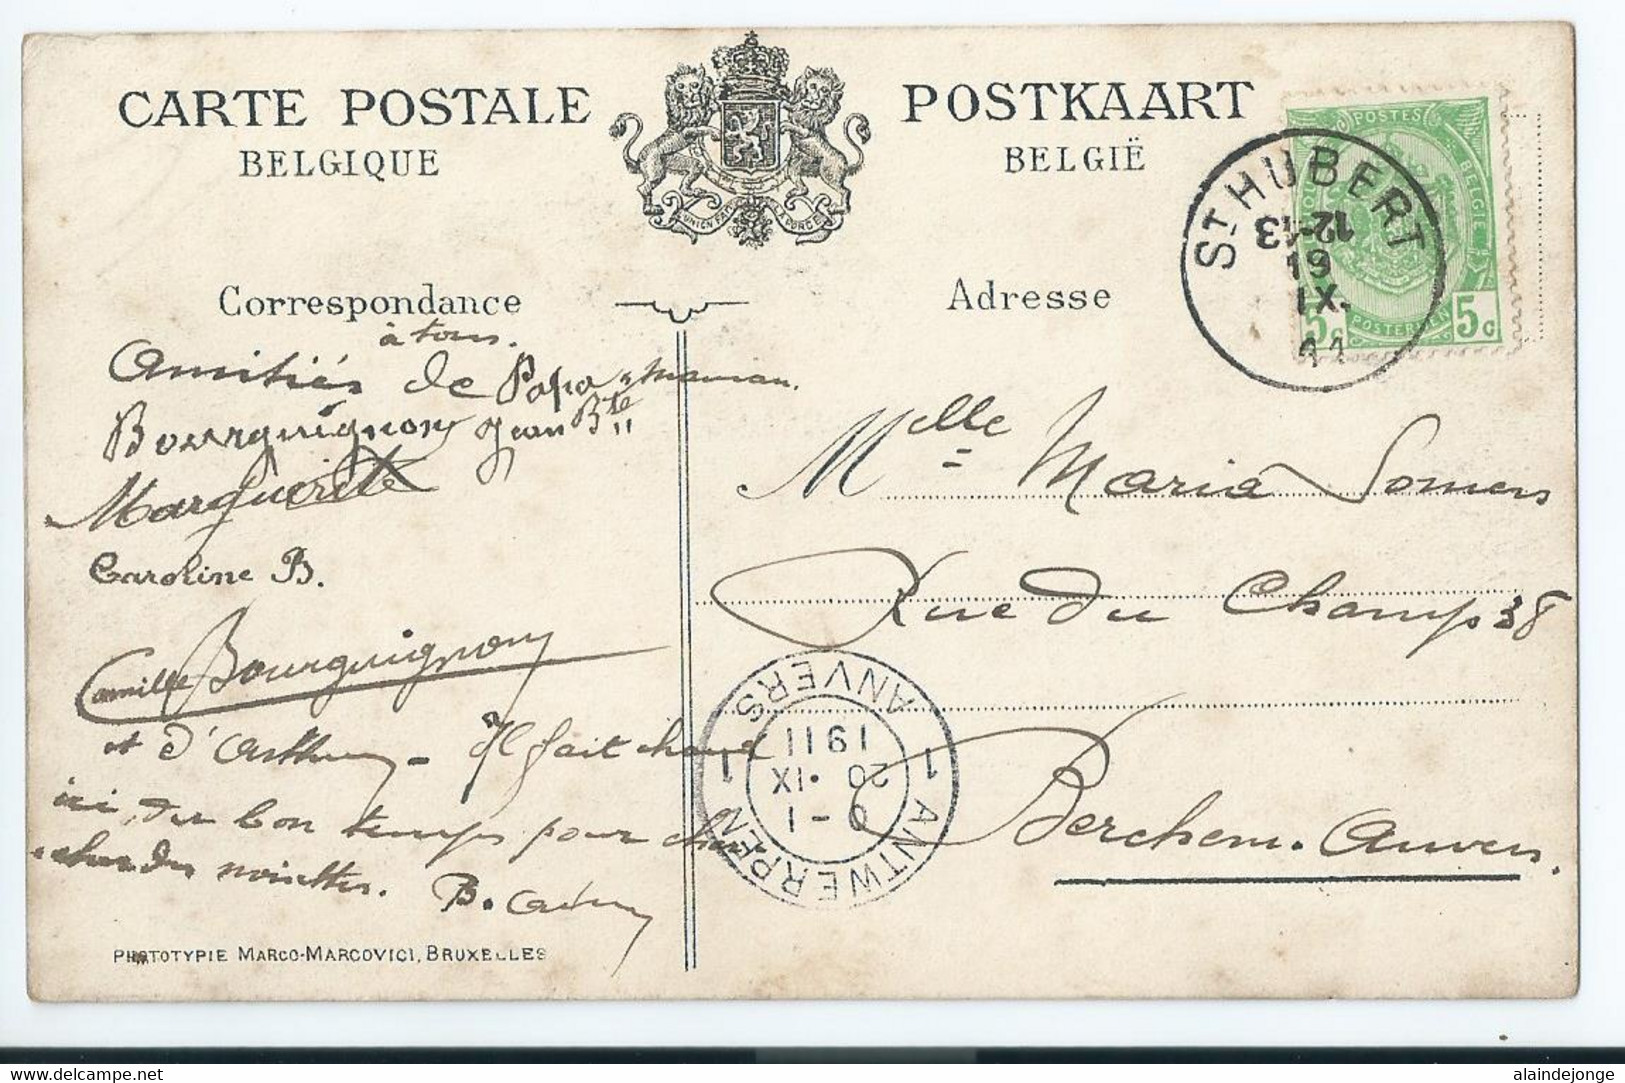 CARTE POSTALE
BELGIQUE
POSTKAART
BELGIË
UNION FAIT LA FORCE
POSTES BELGIQUE
POSTERIJEN
5c 5c
ST HUBERT
12-13
19
IX.
11
Correspondance
Adresse
à tous.
Amitiés de Papa & Maman.
Bourguignon Jean Bte
Marguerite
Caroline B.
Camille Bourguignon
et d'Arthur - Il fait chaud
ici, du bon temps pour cher-
cher des noisettes.
Melle Maria Somers
Rue du Champs 38
Berchem. Anvers.
1 ANTWERPEN 1
ANVERS
0-1
20 · IX
1911
PHOTOTYPIE MARCO-MARCOVICI, BRUXELLES
www.delcampe.net
alaindejonge